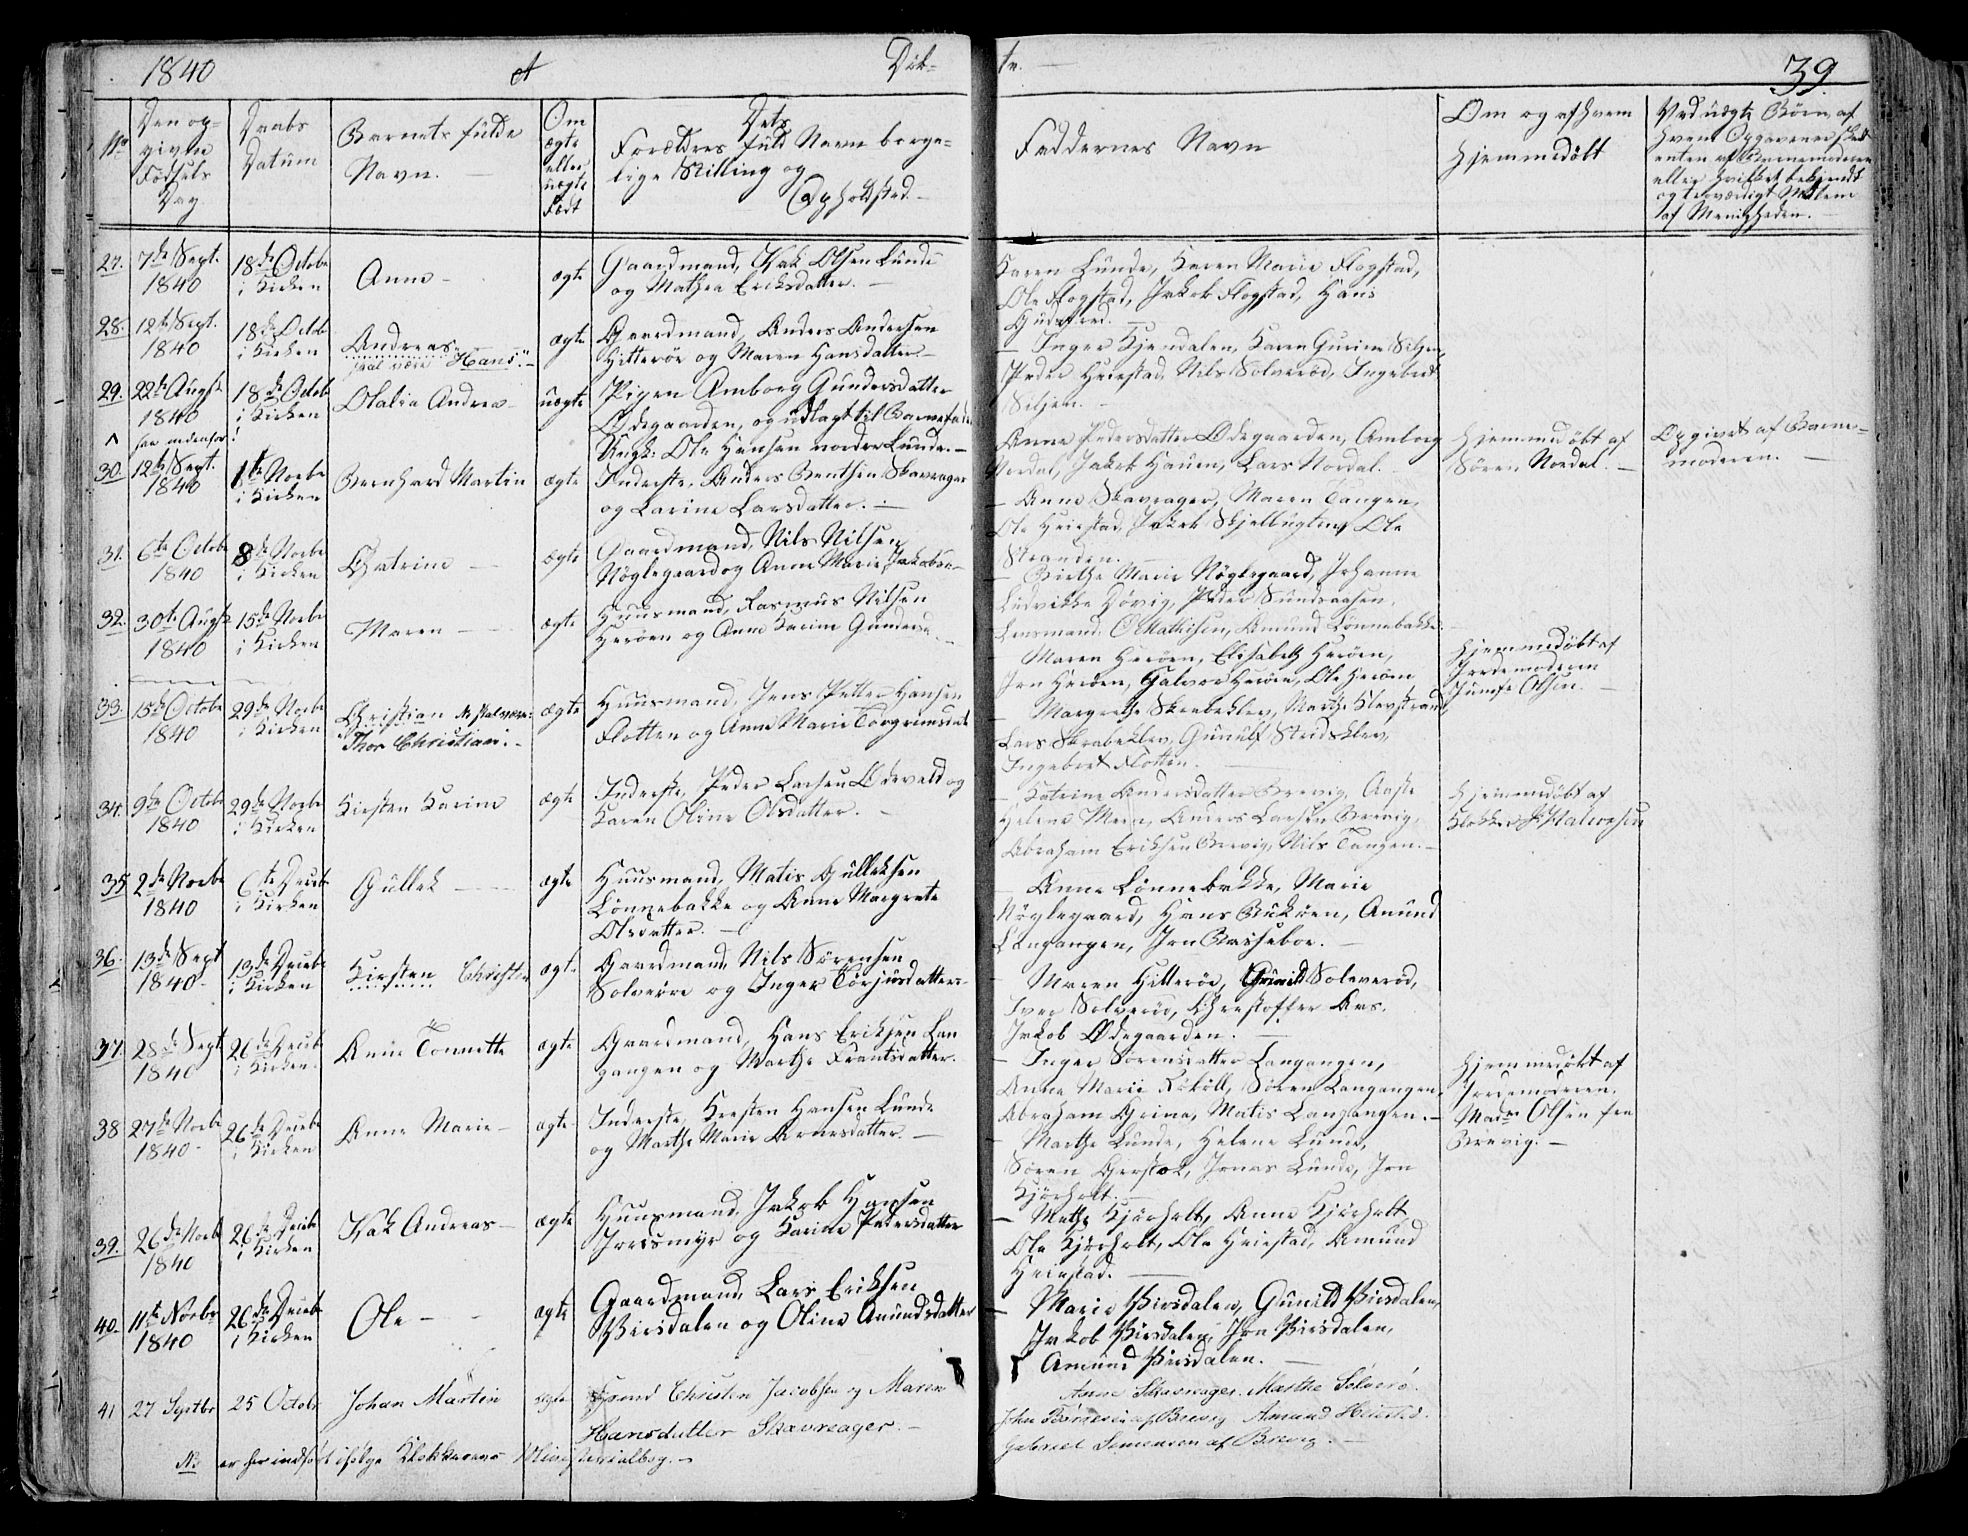 1840
Døb-
te.
39.
No
Den op-
givne
Fødsels
Dag
Daabs
Datum
Barnets fulde
Navn.
Om
ægte
eller
uægte
Født
Dets
Forældres fuld Navn borger-
lige Stilling og
Opholdsted
Faddernes Navn
Om og af hvem
hjemmedøbt
Ved uægte Børn, af
hvem Opgaven er skeet
enten af Barnemoderen
eller hvilket bekjendt
og troværdigt Medlem
af Menigheden.
27. 7de Sept. 1840
18de Octobr i Kirken
Anne
ægte
Gaardmand, Isak Olsen Lunde
og Mathea Eriksdatter.
Karen Lunde, Karen Marie Flogstad,
Ole Flogstad, Jakob Flogstad, Hans
28. 12te Sept. 1840
18de Octobr i Kirken
Andreas
skal være Hans
ægte
Gaardmand, Anders Andersen
Hitterøe og Maren Hansdatter
Inger Kjendalen, Karen Gurine Siljen,
Peder Heiestad, Nils Solverød, Ingebret
Siljen.
29. 22de August 1840
18de Octobr i Kirken
Olalia Andrea
uægte
Pigen Amborg Gundersdatter
Ødegaarden, og udlagt til Barnefader
Ungk: Ole Hansen nordre Lunde.
Anne Pedersdatter Ødegaarden, Amborg
Nordal, Jakob Hauen, Lars Nordal.
Hjemmedøbt af
Søren Nordal.
Opgivet af Barne-
moderen.
see nedenfor!
30. 12te Sept. 1840
1te Novbr i Kirken
Bernhard Martin
ægte
Inderste, Anders Benthsen Skavrager
og Larine Larsdatter.
Anne Skavrager, Maren Tangen,
Ole Heiestad, Jakob Skjelbugten, Ole
Stranden.
31. 6te Octobr 1840
8de Novbr i Kirken
Chatrine
ægte
Gaardmand, Nils Nilsen
Nøglegaard og Anne Marie Jakobsd.
Birthe Marie Nøglegaard, Johanne
Ludvikke Døvig, Peder Sundsaasen,
Lensmand C. Mathisen, Amund Lønnebakke.
32. 30te August 1840
15de Novbr i Kirken
Maren
ægte
Huusmand, Rasmus Nilsen
Herøen og Anne Karine Gundersd.
Maren Herøen, Elisabeth Herøen,
Jon Herøen, Halvor Herøen, Ole Herøen
Hjemmedøbt af
Jordemoderen
Jumfr Olsen.
33. 15de Octobr 1840
29de Novbr i Kirken
Christian N. skal være:
Thor Christian.
ægte
Huusmand, Jens Petter Hansen
Flotten og Anne Marie Torgrimsdat
Margrethe Skrabeklev, Marthe Klevstrand,
Lars Skrabeklev, Gunulf Stridsklev,
Ingebret Flotten.
34. 9de Octobr 1840
29de Novbr i Kirken
Kirsten Karine
ægte
Inderste, Peder Larsen Ødevald og
Karen Oline Olsdatter.
Katrine Andersdatter Brevig, Aaste
Helene Meen, Anders Larsen Brevig,
Abraham Eriksen Brevig, Nils Tangen.
Hjemmedøbt af
Klokker J. Halvorsen
35. 2de Novbr 1840
6te Decbr i Kirken
Gullek
ægte
Huusmand, Matis Gulleksen
Lønnebakke og Anne Margrete
Olsdatter.
Anne Lønnebakke, Marie
Nøglegaard, Hans Bukøen, Amund
Langangen, Jon Basseboe.
36. 13de Sept 1840
13de Decbr i Kirken
Kirsten Christine
ægte
Gaardmand Nils Sørensen
Solverøe og Inger Torjusdatter
Maren Hitterøe, Gunild Solverød,
Iver Solverød, Christoffer Aas,
Jakob Ødegaarden.
37. 28de Sept 1840
26de Decbr i Kirken
Anne Tonnette
ægte
Gaardmand, Hans Eriksen Lan
gangen og Marthe Frantsdatter.
Inger Sørensdatter Langangen,
Anne Marie Kokøll, Søren Langangen,
Abraham Grina, Matis Langangen.
Hjemmedøbt af
Jordemoderen,
Madm Olsen fra
Brevig.
38 27de Novbr 1840
26de Decbr i Kirken
Anne Marie
ægte
Inderste, Kresten Hansen Lunde
og Marthe Marie Arnesdatter.
Marthe Lunde, Helene Lunde,
Søren Aarstok, Jonas Lunde, Jon
Kjørholt.
39. 26de Novbr 1840
26de Decbr i Kirken
Isak Andreas
ægte
Huusmand, Jakob Hansen
Jorismyr og Karine Pedersdatter
Mathe Kjørholt, Anne Kjørholt
Ole Kjørholt, Ole Heiestad, Amund
Heiestad.
40. 11te Novbr 1840
26de Decbr i Kirken
Ole
ægte
Gaardmand, Lars Eriksen
Versdalen og Oline Amundsdatter
Marie Versdalen, Gunild Versdalen,
Jakob Versdalen, Jon Versdalen,
Amund Versdalen.
41 27 Septbr
25 Octobr
Johan Martin
ægte
Christen Jacobsen og Maren
Hansdatter Skavreager.
Anne Skavreager. Marthe Solverø.
John af Brevig Amund Heiestad.
Gabriel Simensen af Brevig.
No er her indført ifølge Klokkerens Ministerialbog.